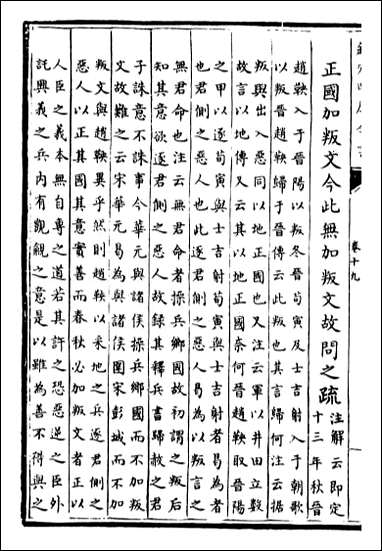 正國加叛文今此無加叛文故問之疏
注解云即定
十三年秋晉
趙鞅入于晉陽以叛冬晉荀寅及士吉射入于朝歌
以叛晉趙鞅歸于晉傳云此叛也其言歸何注云据
叛與出入惡同以地正國也又注云軍以井田立數
故言以地傳又云其以地正國奈何晉趙鞅取晉陽
之甲以逐荀寅與士吉射荀寅與士吉射者曷為者
也君側之惡人也此逐君側之惡人曷為以叛言之
無君命也注云無君命者操兵鄉國故初謂之叛后
知其意欲逐君側之惡人故錄其釋兵書歸赦之君
子誅意不誅事今華元與諸侯操兵鄉國而不加叛
文故難之云宋華元曷為與諸侯圍宋彭城而不加
叛文與趙鞅異乎然則趙鞅以采地之兵逐君側之
惡人以正其國其意實善而春秋必加叛文者正以
人臣之義本無自專之道若其許之恐惡逆之臣外
託興義之兵內有覬覦之意是以雖為善不得與之
卷十九